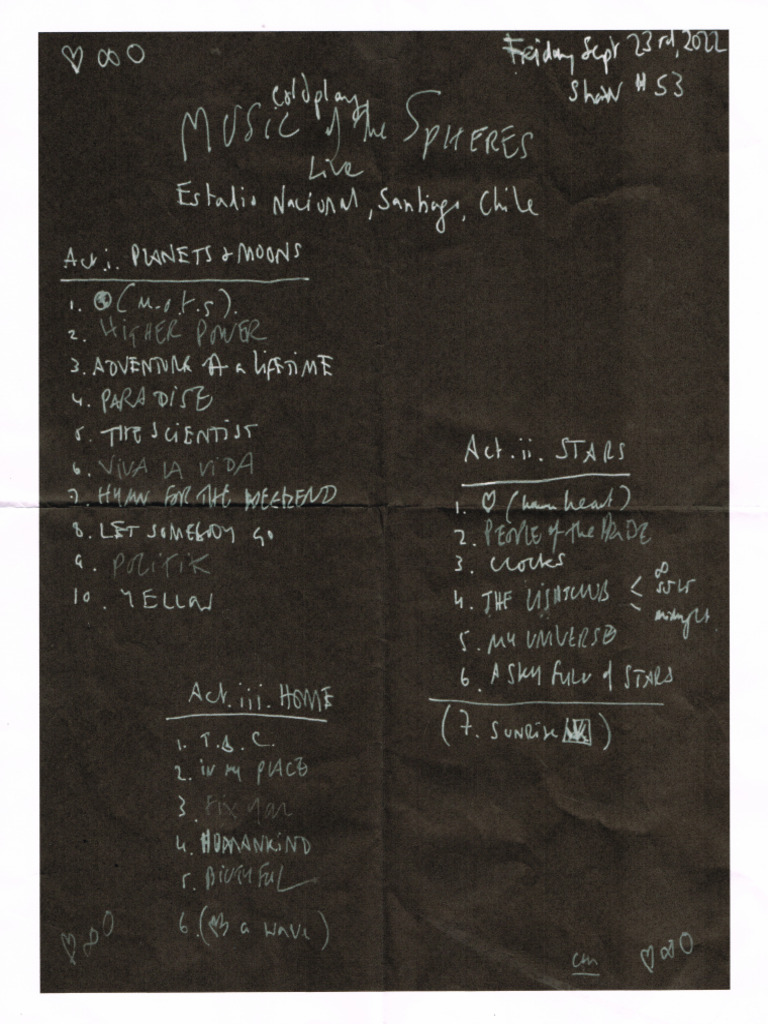 ♡ ∞ O
Friday Sept 23rd, 2022
Show # 53
Coldplay
MUSIC of the SPHERES
Live
Estadio Nacional, Santiago, Chile
Act. i. PLANETS & MOONS
1. (M.O.T.S).
2. HIGHER POWER
3. ADVENTURE OF A LIFETIME
4. PARADISE
5. THE SCIENTIST
6. VIVA LA VIDA
7. HYMN FOR THE WEEKEND
8. LET SOMEBODY GO
9. POLITIK
10. YELLOW
Act. ii. STARS
1. ♡ (human heart)
2. PEOPLE of the PRIDE
3. CLOCKS
4. THE LIGHTCLUB < ∞
midnight
5. MY UNIVERSE
6. A SKY FULL of STARS
(7. SUNRISE)
Act. iii. HOME
1. T.B.C.
2. in my PLACE
3. Fix You
4. HUMANKIND
5. BIUTYFUL
6. (a wave)
♡ ∞ O
cm
♡ ∞ O